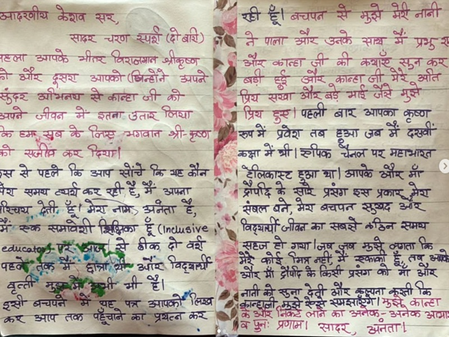 आदरणीय केशव सर,
सादर चरण स्पर्श (दो बार)
पहला आपके भीतर विराजमान श्रीकृष्ण
को और दूसरा आपको जिन्होंने अपने
सुंदर अभिनय से कान्हा जी को
अपने जीवन में इतना उतार लिया
कि हम सब के लिए भगवान श्री कृष्ण
को सजीव कर दिया।
इस से पहले कि आप सोचें कि यह कौन
मेरा समय व्यर्थ कर रही है, मैं अपना
परिचय देती हूँ। मेरा नाम अनंता है,
मैं एक समावेशी शिक्षिका हूँ (Inclusive
educator) पर आज से ठीक दो वर्ष
पहले तक मैं और विद्यार्थी
थी भी हूँ।
इसी बचपने में यह पत्र आपको लिख
कर आप तक पहुँचाने का प्रयत्न कर
रही हूँ। बचपन से मुझे मेरी नानी
ने पाला और उनके साथ मैं प्रभु
और कान्हा जी की कथाएँ सुन कर
बड़ी हुई और कान्हा जी मेरे
प्रिय सखा और बड़े भाई जैसे मुझे
प्रिय हुए। पहली बार आपका कृष्ण
रूप में प्रवेश तब हुआ जब मैं दसवीं
कक्षा में थी। चैनल पर महाभारत
हुआ था। आपके और माँ
द्रौपदी के सारे प्रसंग इस प्रकार मेरा
संबल बने, मेरा बचपन सुखद और
विद्यार्थी जीवन का सबसे कठिन समय
सहज हो गया। जब जब मुझे लगता कि
मेरे कोई मित्र नहीं, मैं हूँ, तब आपके
और माँ द्रौपदी के किसी प्रसंग को माँ और
नानी को सुना देती और कल्पना करती कि
कान्हा जी मुझे ऐसे समझाएँगे। मुझे कान्हा
के और निकट लाने का अनेक-अनेक आभार
व पुनः प्रणाम। सादर, अनंता।